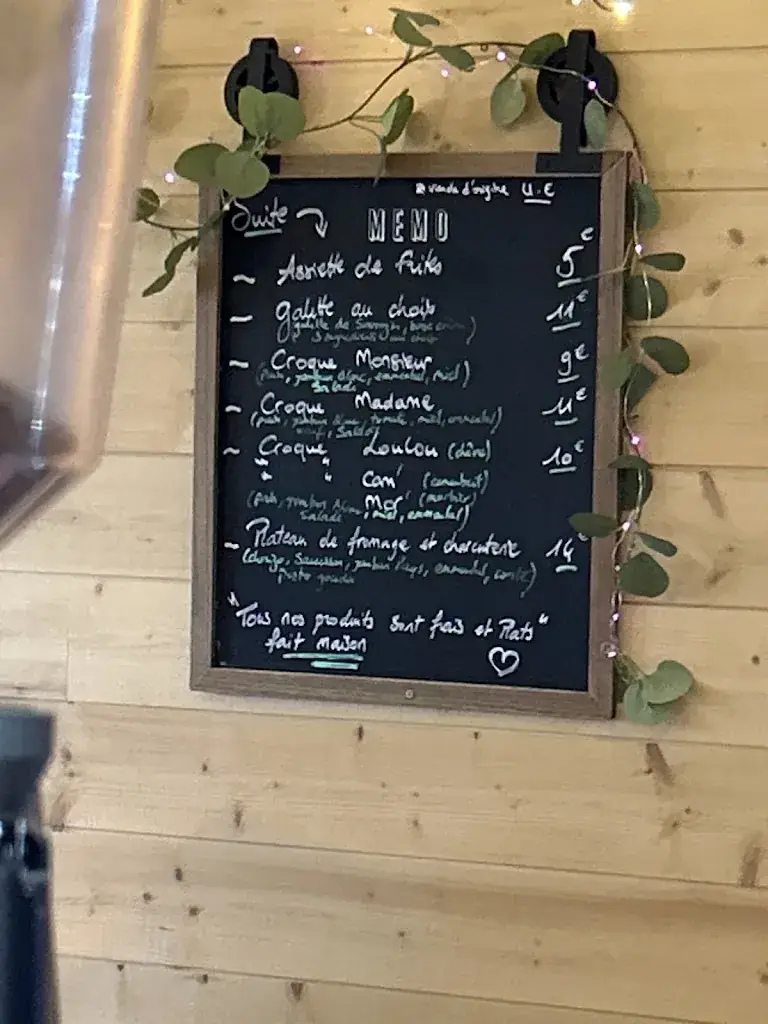 viande d'origine U.E
Suite
MEMO
~ Assiette de frites 5€
~ galette au choix 11€
~ Croque Monsieur 9€
(pain, jambon blanc, emmental, miel)
Salade
~ Croque Madame 11€
(pain, jambon blanc, tomate, miel, emmental)
oeuf, Salade
~ Croque Loulou (chèvre) 10€
" " Cam' (camembert)
Mor' (morbier)
(pain, jambon blanc, miel, emmental)
Salade
~ Plateau de fromage et charcuterie 14€
(chorizo, Saucisson, jambon Pays, emmental, comté)
"Tous nos produits sont frais et Plats"
fait maison